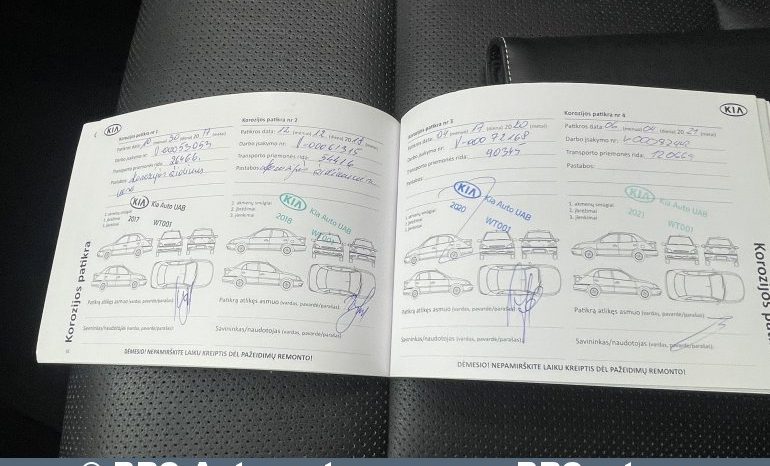 KIA
Korozijos patikra nr 1
Patikros data: 10 (mėnuo) 30 (diena) 20 17 (metai)
Darbo įsakymo nr:
Transporto priemonės rida: 36466
Pastabos:
KIA Kia Auto UAB
1. akmenų smūgiai
2. įbrėžimai
3. įlenkimai
2017 WT001
Patikrą atlikęs asmuo (vardas, pavardė/parašas):
Savininkas/naudotojas (vardas, pavardė/parašas):
Korozijos patikra
Korozijos patikra nr 2
Patikros data: 12 (mėnuo) 12 (diena) 20 18 (metai)
Darbo įsakymo nr: V-00061315
Transporto priemonės rida: 54416
Pastabos:
KIA Kia Auto UAB
2018 WT001
Patikrą atlikęs asmuo (vardas, pavardė/parašas):
Savininkas/naudotojas (vardas, pavardė/parašas):
DĖMESIO! NEPAMIRŠKITE LAIKU KREIPTIS DĖL PAŽEIDIMŲ REMONTO!
Korozijos patikra nr 3
Patikros data: 01 (mėnuo) 17 (diena) 20 20 (metai)
Darbo įsakymo nr: V-00072168
Transporto priemonės rida: 90345
Pastabos:
KIA Kia Auto UAB
1. akmenų smūgiai
2. įbrėžimai
3. įlenkimai
2020 WT001
Patikrą atlikęs asmuo (vardas, pavardė/parašas):
Savininkas/naudotojas (vardas, pavardė/parašas):
KIA
Korozijos patikra nr 4
Patikros data: 04 (mėnuo) 01 (diena) 20 21 (metai)
Darbo įsakymo nr:
Transporto priemonės rida:
Pastabos:
KIA Kia Auto UAB
1. akmenų smūgiai
2. įbrėžimai
3. įlenkimai
2021 WT001
Patikrą atlikęs asmuo (vardas, pavardė/parašas):
Savininkas/naudotojas (vardas, pavardė/parašas):
DĖMESIO! NEPAMIRŠKITE LAIKU KREIPTIS DĖL PAŽEIDIMŲ REMONTO!